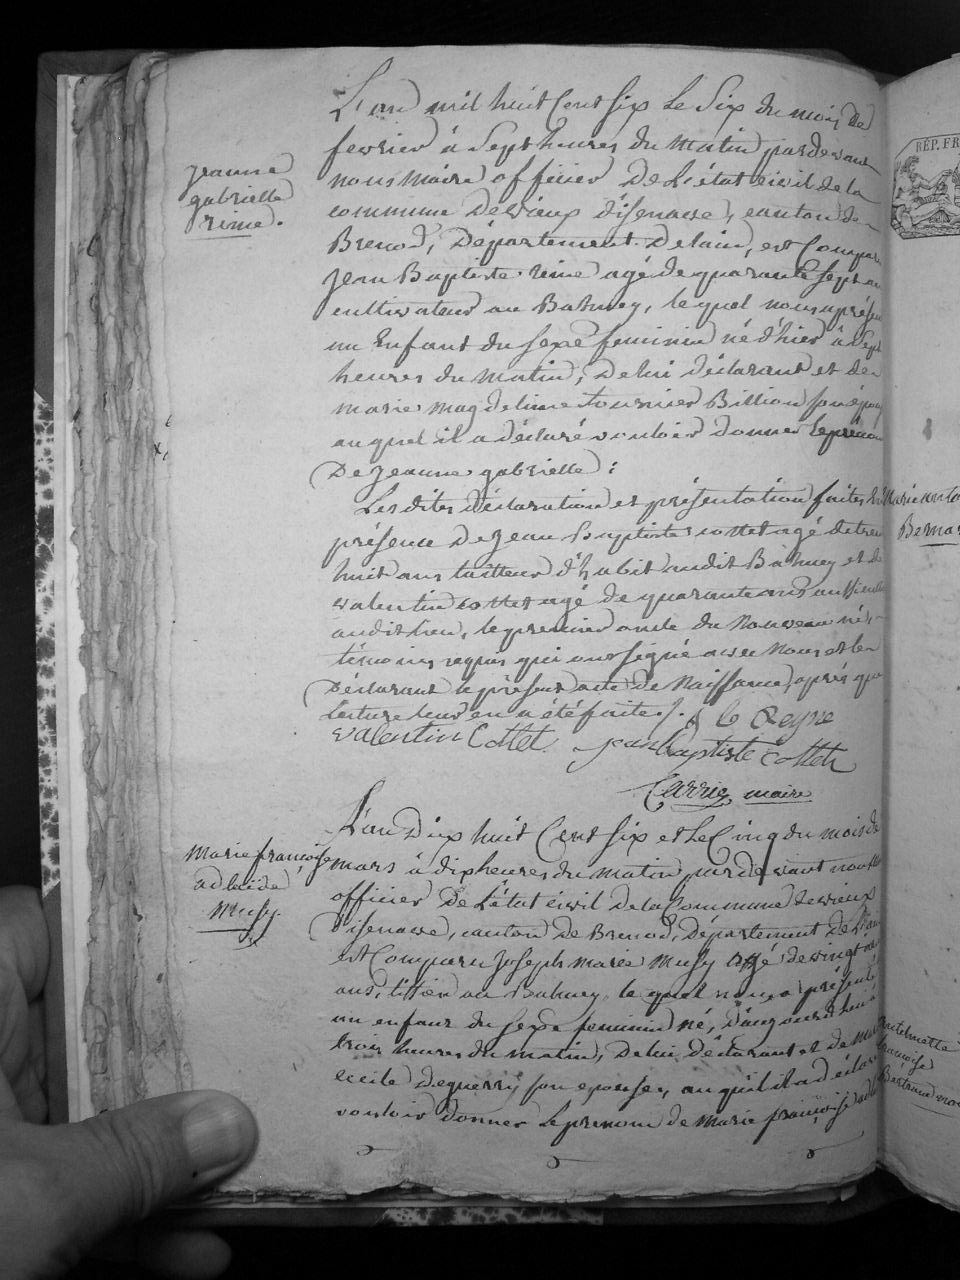 jeanne
gabrielle
reine.
L'an mil huit Cent six le six du mois de
fevrier à sept heures du matin pardevant
nous maire officier De L'état civil de la
commune De vieux d'isenave, canton de
Brenod, Département Delain, est Compar
jean Baptiste reine agé de quarante sept an
cultivateur au Balmey, lequel nous a présen
un Enfant du sexe feminin né d'hier à sept
heures du matin, De lui déclarant et de
marie magdeleine tournier Billion son épou
auquel il a déclaré vouloir donner le prénom
De jeanne gabrielle :
Les dites déclaration et présentation faites En
présence De jean Baptiste cottet agé de tren
huit ans tailleur d'habit audit Balmey et de
valentin cottet agé de quarante ans aussi
audit lieu, le premier oncle du Nouveau né,
témoins requis qui ont signé avec Nous et le
Déclarant le présent acte de Naissance, après que
lecture leur en a été faite.
valentin Cottet jean baptiste cottet
Carrier maire
marie françoise
adelaide
musy.
L'an Dix huit Cent six et le Cinq du mois de
mars à dix heures du matin pardevant nous
officier De L'état civil De la Commune De vieux
d'isenave, canton De Brenod, Département de L'ain
est Comparu joseph marie musy agé de vingt
ans, au Balmey, lequel nous a présenté
un enfant du sexe feminin né, d'aujourd'hui à
trois heures du matin, De lui Déclarant et de
cecile son epouse, auquel il a déclaré
vouloir Donner Le prenom de marie françoise
RÉP. FR
marie anto
Bernar
françoise
Bertrand